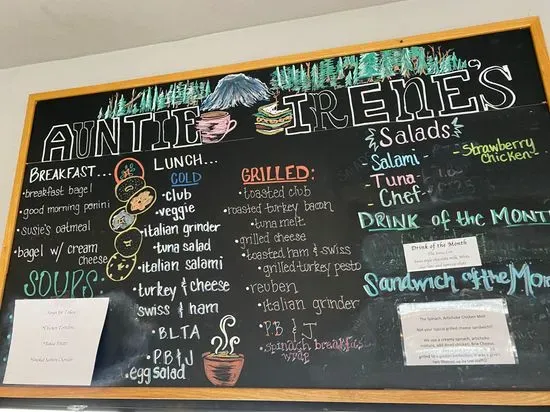 AUNTIE IRENE'S
BREAKFAST...
•breakfast bagel
•good morning panini
•susie's oatmeal
•bagel w/ cream
cheese
SOUPS:
Soups for Today
LUNCH...
COLD
•club
•veggie
•italian grinder
•tuna salad
•italian salami
•turkey & cheese
•swiss & ham
•B.L.T.A
•P.B & J
•egg salad
GRILLED:
•toasted club
•roasted turkey bacon
•tuna melt
•grilled cheese
•toasted ham & swiss
•grilled turkey pesto
•reuben
•italian grinder
•P.B & J
•spinach breakfast
wrap
Salads
Salami -
Tuna -
Chef -
-Strawberry
Chicken-
DRINK of the MONT
Drink of the Month
Sandwich of the Mo
The Spinach, Artichoke Chicken Melt
Not your typical grilled cheese sandwich!
We use a creamy spinach, artichoke